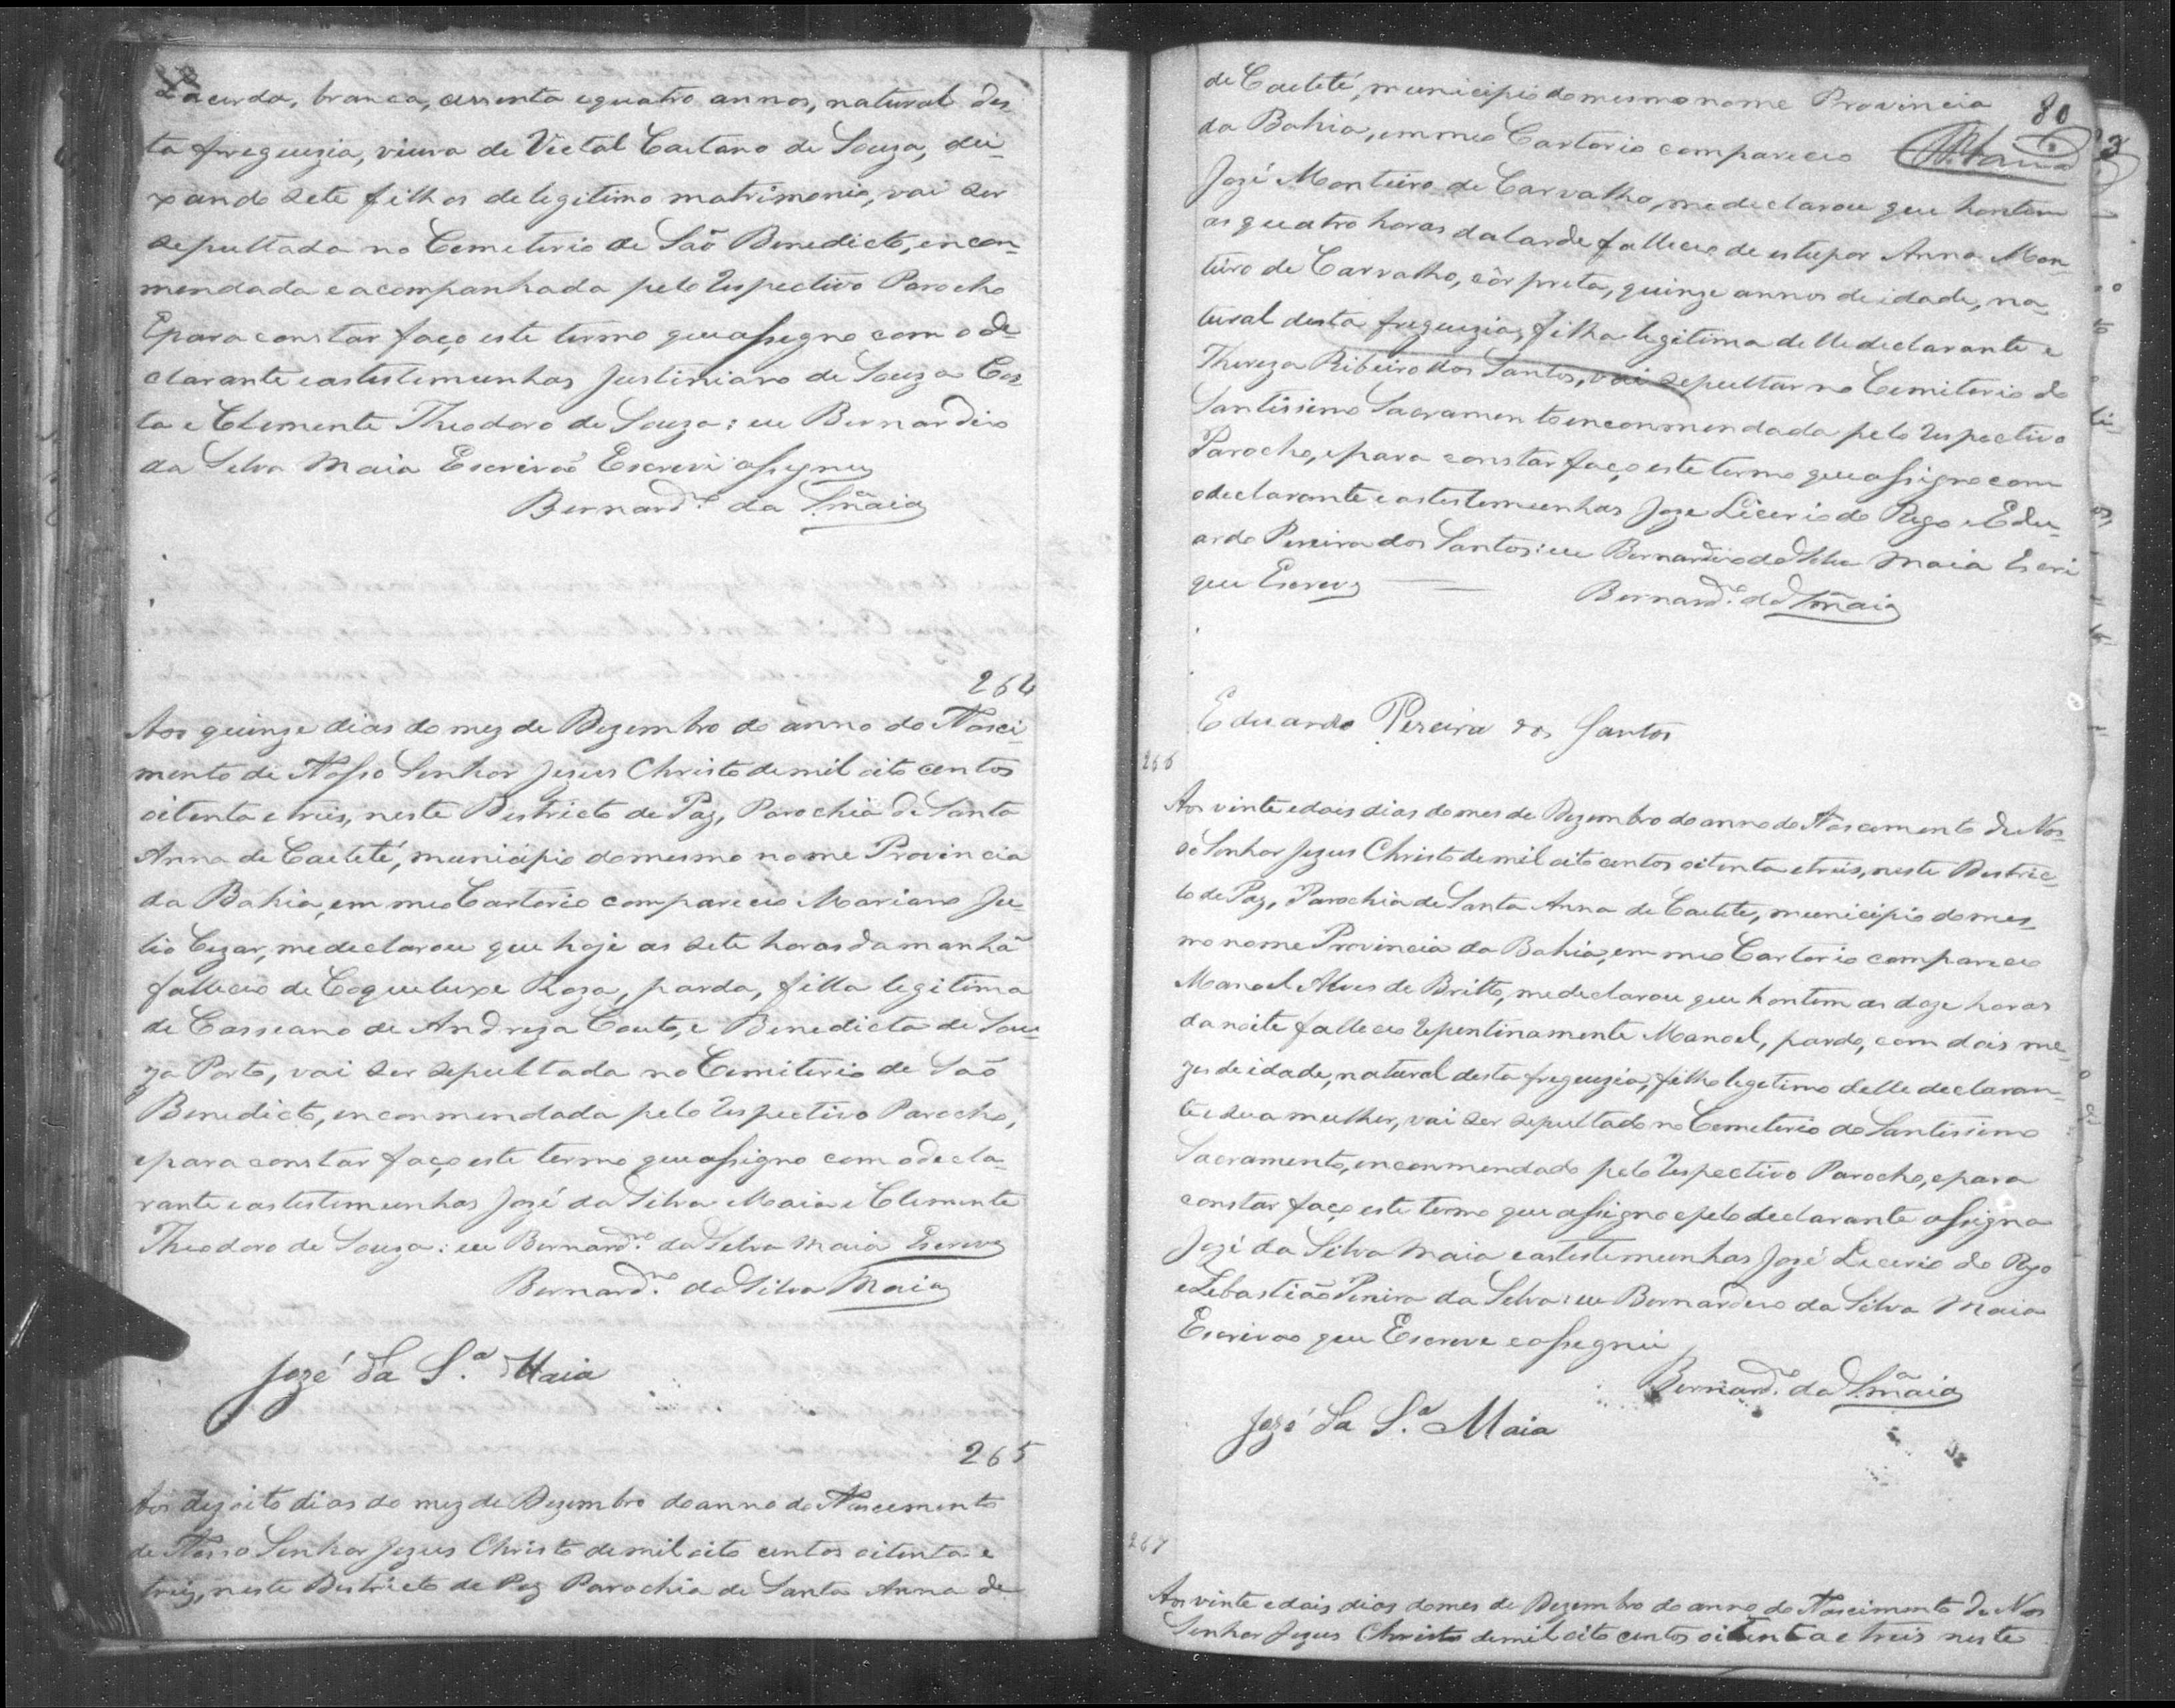 Lacerda, branca, cessenta e quatro annos, natural des_
ta freguezia, viuva de Victal Caetano de Souza, dei_
xando sete filhos de legitimo matrimonio, vai ser
sepultada no Cemeterio de São Benedicto, encon_
mendada e acompanhada pelo respectivo Parocho
E para constar faço este termo que assigno com o de_
clarante e as testemunhas Justiniano de Souza Cos_
ta e Clemente Theodoro de Souza: eu Bernardino
da Silva Maia Escrivão Escrevi assigney
Bernard.no da S.ª Maia
264
Aos quinze dias do mez de Dezembro do anno do Nasci_
mento de Nosso Senhor Jezus Christo de mil oito centos
oitenta e treis, neste Destricto de Paz, Parochia de Santa
Anna de Caeteté, municipio do mesmo nome Provincia
da Bahia, em meo Cartorio compareceo Mariano Ju_
lio Cezar, me declarou que hoje as sete horas da manhã
falleceo de Coqueluxe Roza, parda, filla legitima
de Casseano de Andreza Couto, e Benedicta de Sou_
za Porto, vai ser sepultada no Cemiterio de São
Benedicto, enconmendada pelo respectivo Parocho,
e para constar faço este termo que assigno com o decla_
rante e as testemunhas José da Silva Maia e Clemente
Theodoro de Souza: eu Bernard.no da Silva Maia Escrevy
Bernard.no da Silva Maia
José da S.ª Maia
265
Aos dezoito dias do mez de Dezembro do anno do Nascemento
de Nosso Senhor Jezus Christo de mil oito centos oitenta e
treiz, neste Destricto de Paz Parochia de Santa Anna de
80
de Caeteté, municipio do mesmo nome Provincia
da Bahia, em meo Cartorio compareceo
José Monteiro de Carvalho, me declarou que hontem
as quatro horas da tarde falleceo de estupor Anna Mon_
teiro de Carvalho, côr preta, quinze annos de idade, na_
tural desta freguezia, filha legitima delle declarante e
Thereza Ribeiro dos Santos, vai sepultar no Cemiterio do
Santissimo Sacramento enconmendada pelo respectivo
Parocho, e para constar faço este termo que assigno com
o declarante e as testemunhas Jose Licerio do Rego e Edu_
ardo Pereira dos Santos: eu Bernardino da Silva Maia Escri
que Escrevy
Bernard.no da S.ª Maia
Eduardo Pereira dos Santos
266
Aos vinte e dois dias do mes de Dezembro do anno do Nascemento de Nos_
so Senhor Jezus Christo de mil oito centos oitenta e treis, neste Destric_
to de Paz, Parochia de Santa Anna de Caeteté, municipio do mes_
mo nome Provincia da Bahia, em meo Cartorio compareceo
Manoel Alves de Britto, me declarou que hontem as doze horas
da noite falleceo repentinamente Manoel, pardo, com dois me_
zes de idade, natural desta freguezia, filho legetimo delle declaran_
te e sua mulher, vai ser sepultado no Cemeterio do Santissimo
Sacramento, enconmendado pelo respectivo Parocho, e para
constar faço este termo que assigno e pelo declarante assigna
José da Silva Maia e as testemunhas José Lecerio do Rego
e Sebastião Pereira da Silva: eu Bernardeno da Silva Maia
Escrivão que Escreve e assegnei
Bernard.no da S.ª Maia
José da S.ª Maia
267
Aos vinte e dois dias do mes de Dezembro do anno do Nascimento de Nos
Senhor Jezus Christo de mil oito centos oitenta e treis neste